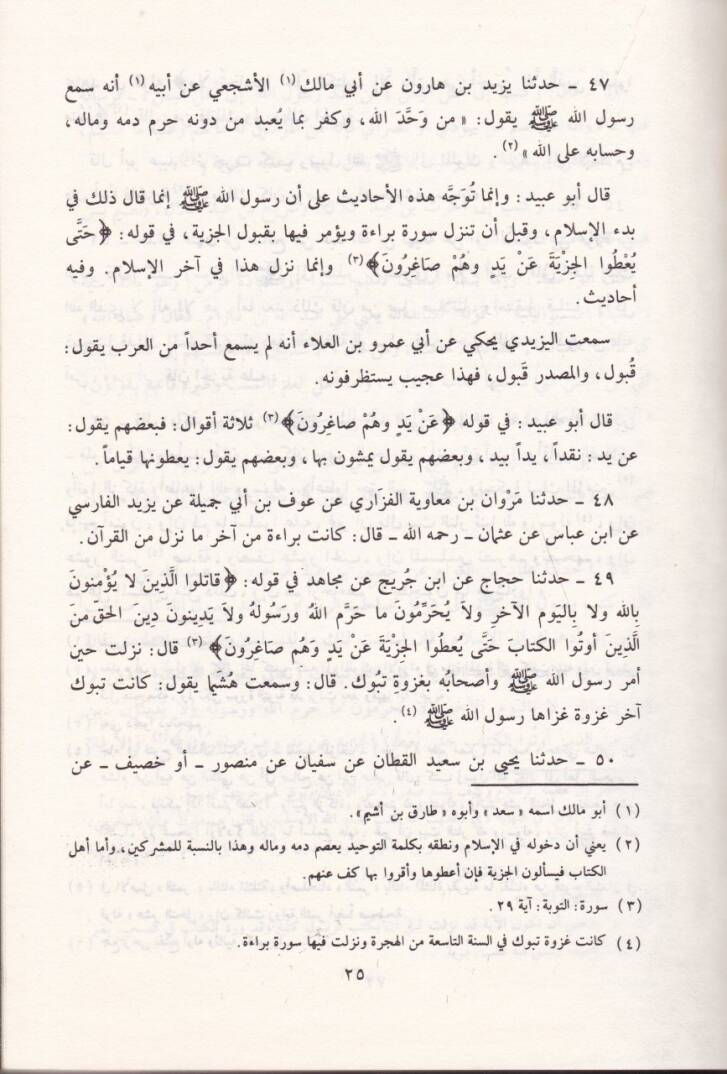 ٤٧ ـ حدثنا يزيد بن هارون عن أبي مالك (١) الأشجعي عن أبيه (١) أنه سمع
رسول الله ﷺ يقول: « من وَحَّدَ الله، وكفر بما يُعبد من دونه حرم دمه وماله،
وحسابه على الله » (٢) .
قال أبو عبيد: وإنما تُوَجَّه هذه الأحاديث على أن رسول الله ﷺ إنما قال ذلك في
بدء الإسلام، وقبل أن تنزل سورة براءة ويؤمر فيها بقبول الجزية، في قوله: ﴿حَتَّى
يُعْطُوا الجِزْيَةَ عَنْ يَدٍ وهُمْ صاغِرُونَ﴾ (٣) وإنما نزل هذا في آخر الإسلام. وفيه
أحاديث.
سمعت اليزيدي يحكي عن أبي عمرو بن العلاء أنه لم يسمع أحداً من العرب يقول:
قُبول، والمصدر قَبول، فهذا عجيب يستظرفونه.
قال أبو عبيد: في قوله ﴿عَنْ يَدٍ وهُمْ صاغِرُونَ﴾ (٣) ثلاثة أقوال: فبعضهم يقول:
عن يد: نقداً، يداً بيد، وبعضهم يقول يمشون بها، وبعضهم يقول: يعطونها قياماً.
٤٨ ـ حدثنا مَرْوان بن معاوية الفزَاري عن عوف بن أبي جميلة عن يزيد الفارسي
عن ابن عباس عن عثمان ـ رحمه الله ـ قال: كانت براءة من آخر ما نزل من القرآن.
٤٩ ـ حدثنا حجاج عن ابن جُريج عن مجاهد في قوله: ﴿قاتلوا الَّذِينَ لا يُؤْمنونَ
بِالله ولا بِاليَوم الآخرِ ولا يُحَرِّمُونَ ما حَرَّم اللهُ ورَسُولُهُ ولاَ يَدِينونَ دِينَ الحَقِّ منَ
الَّذِينَ أوتُوا الكتابَ حَتَّى يُعطُوا الجِزْيَةَ عَنْ يَدٍ وَهُم صاغِرُونَ﴾ (٣) قال: نزلت حين
أمر رسول الله ﷺ وأصحابُه بغزوةِ تبُوك. قال: وسمعت هُشيماً يقول: كانت تبوك
آخر غزوة غزاها رسول الله ﷺ (٤).
٥٠ ـ حدثنا يحيى بن سعيد القطان عن سفيان عن منصور ـ أو خصيف ـ عن
(١) أبو مالك اسمه « سعد » وأبوه « طارق بن أشيم ».
(٢) يعني أن دخوله في الإسلام ونطقه بكلمة التوحيد يعصم دمه وماله وهذا بالنسبة للمشركين، وأما أهل
الكتاب فيسألون الجزية فإن أعطوها وأقروا بها كف عنهم.
(٣) سورة: التوبة: آية ٢٩ .
(٤) كانت غزوة تبوك في السنة التاسعة من الهجرة ونزلت فيها سورة براءة.
٢٥